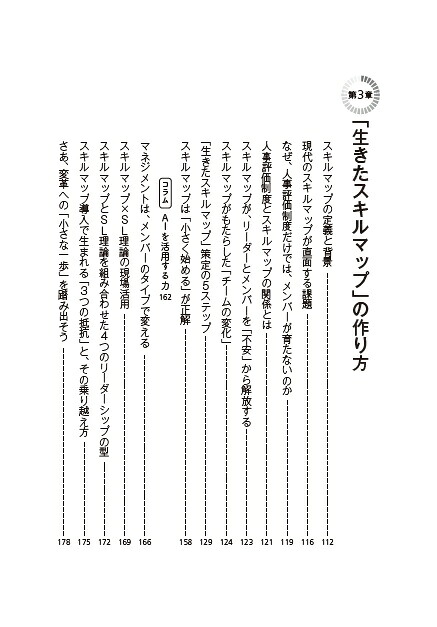 第3章
「生きたスキルマップ」の作り方
スキルマップの定義と背景 112
現代のスキルマップが直面する課題 116
なぜ、人事評価制度だけでは、メンバーが育たないのか 119
人事評価制度とスキルマップの関係とは 121
スキルマップが、リーダーとメンバーを「不安」から解放する 123
スキルマップがもたらした「チームの変化」 124
「生きたスキルマップ」策定の5ステップ 129
スキルマップは「小さく始める」が正解 158
コラム AIを活用する力 162
マネジメントは、メンバーのタイプで変える 166
スキルマップ×SL理論の現場活用 169
スキルマップとSL理論を組み合わせた4つのリーダーシップの型 172
スキルマップ導入で生まれる「3つの抵抗」と、その乗り越え方 175
さあ、変革への「小さな一歩」を踏み出そう 178